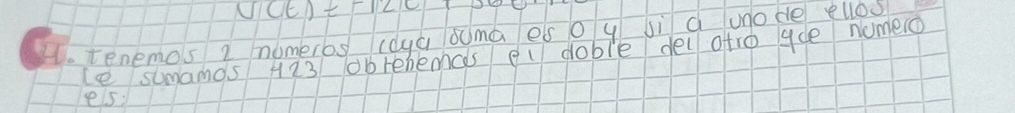 V(t) = -12t + 360
4. Tenemos 2 numeros cuya suma es 0 y si a uno de ellos
le sumamos 423 obtenemos el doble del otro que numero
es: